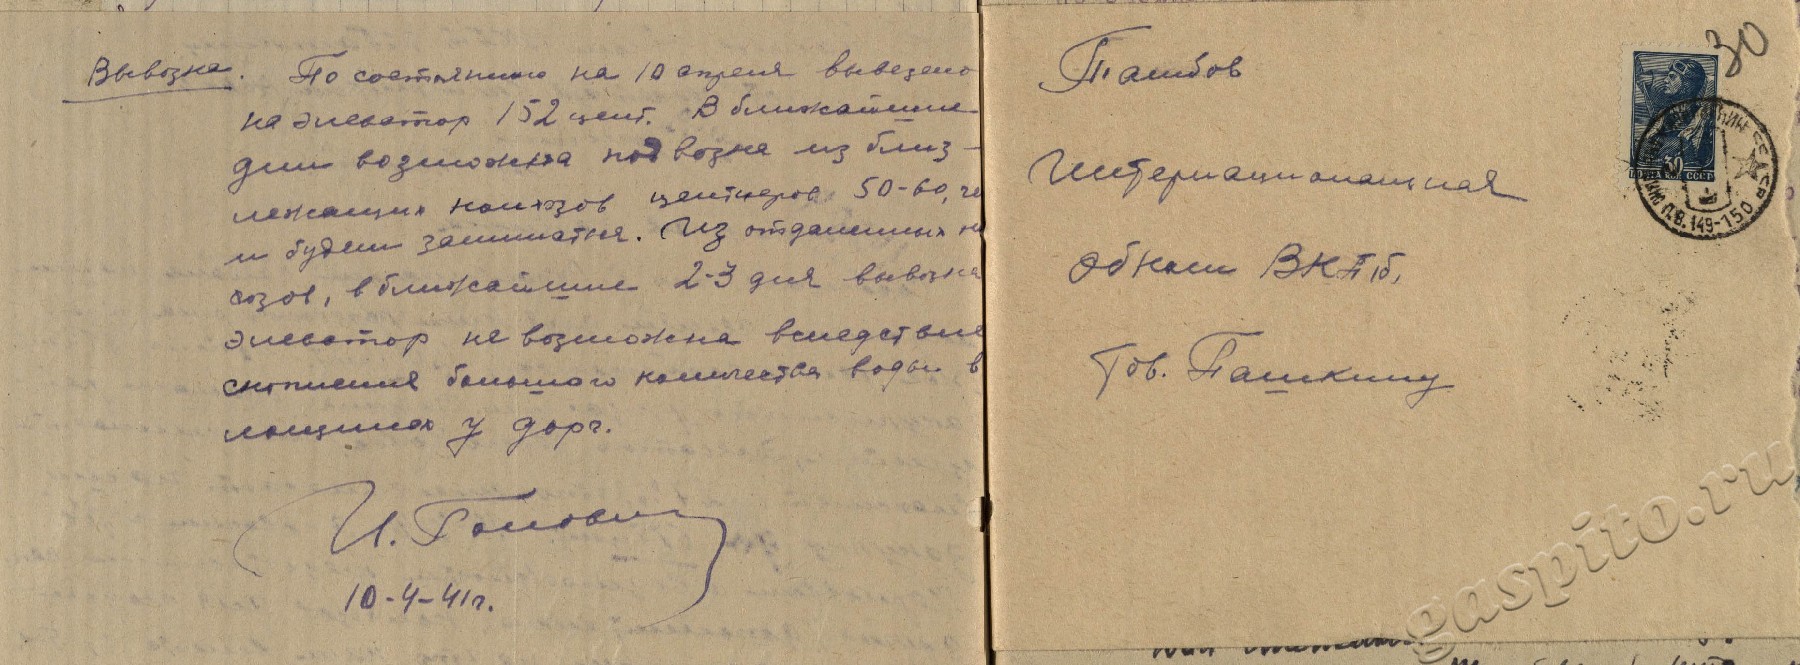 Вывозка. По состоянию на 10 апреля вывезено
на элеватор 152 цент. В ближайшие
дни возможна подвозка из близ-
лежащих колхозов центнеров 50-60, че
и будем заниматся. Из отдаленных ко
хозов, в ближайшие 2-3 дня вывозка
элеватор не возможна вследствие
скопления большого количества воды в
лощинах у дорг.
И. Голович
10-4-41г.
Тамбов
Интернациональная
Обком ВКПб,
Тов. Пашкину
30
30
ПОЧТА СССР
П.В.149-150
gaspito.ru